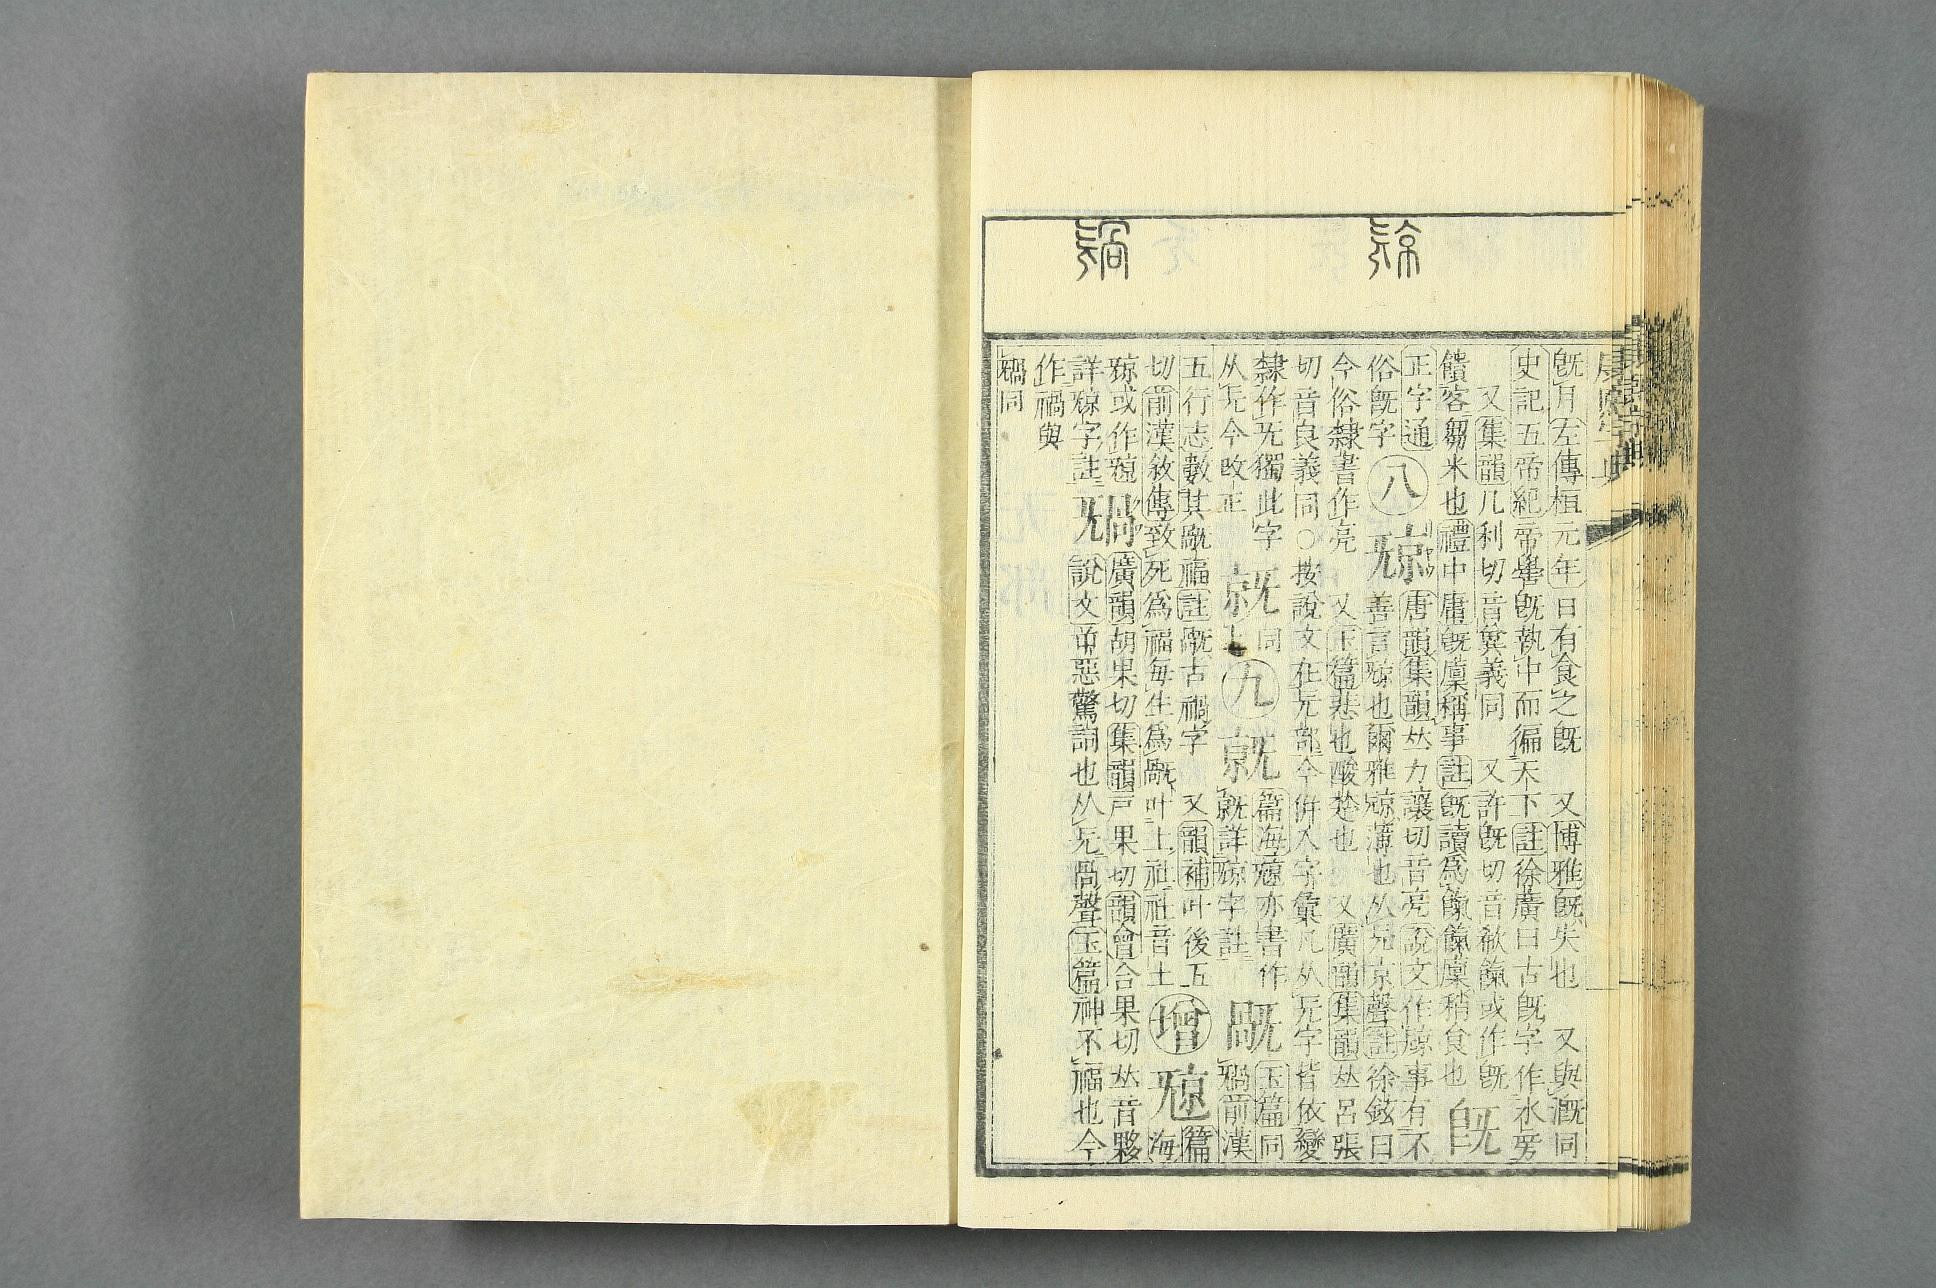 旣月左傳桓元年日有食之旣　又博雅旣失也　又與漑同
史記五帝紀帝嚳旣執中而徧天下註徐廣曰古旣字作水旁
又集韻几利切音冀義同　又許旣切音欷餼或作旣
饋客芻米也禮中庸旣廩稱事註旣讀爲餼餼廩稍食也　既
正字通
俗旣字　八　𣄴
唐韻集韻𠀤力讓切音亮說文作𣄴事有不
善言𣄴也爾雅𣄴薄也从旡京聲註徐鉉曰
今俗隸書作亮　又玉篇悲也酸楚也　又廣韻集韻𠀤呂張
切音良義同○按說文在旡部今倂入字彙凡从旡字皆依變
隸作旡獨此字
从旡今改正
同
上
九
篇海亦書作
就詳𣄴字註
玉篇同
旤前漢
五行志數其旤福註旤古禍字　又韻補叶後五
切前漢敘傳致死爲福每生爲旤叶上社社音土
增
篇
海
𣄴或作
詳𣄴字註　旤
廣韻胡果切集韻戸果切韻會合果切𠀤音夥
說文屰惡驚詞也从旡咼聲玉篇神不福也今
作禍與
旤同
康熙字典